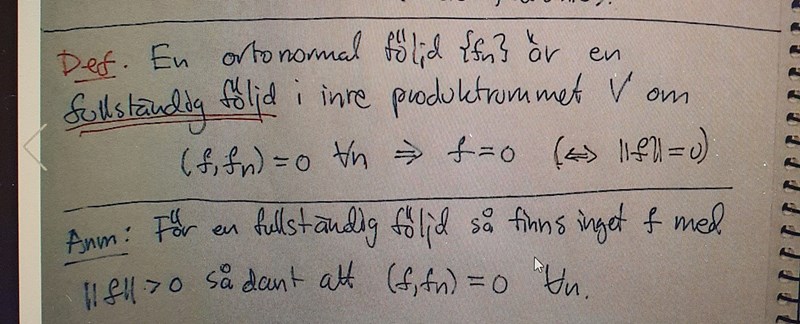 Def. En ortonormal följd {fn} är en
fullständig följd i inre produktrummet V om
(f, fn) = 0 ∀n ⇒ f = 0 (⇔ ||f|| = 0)
Anm: För en fullständig följd så finns inget f med
||f|| > 0 sådant att (f, fn) = 0 ∀n.